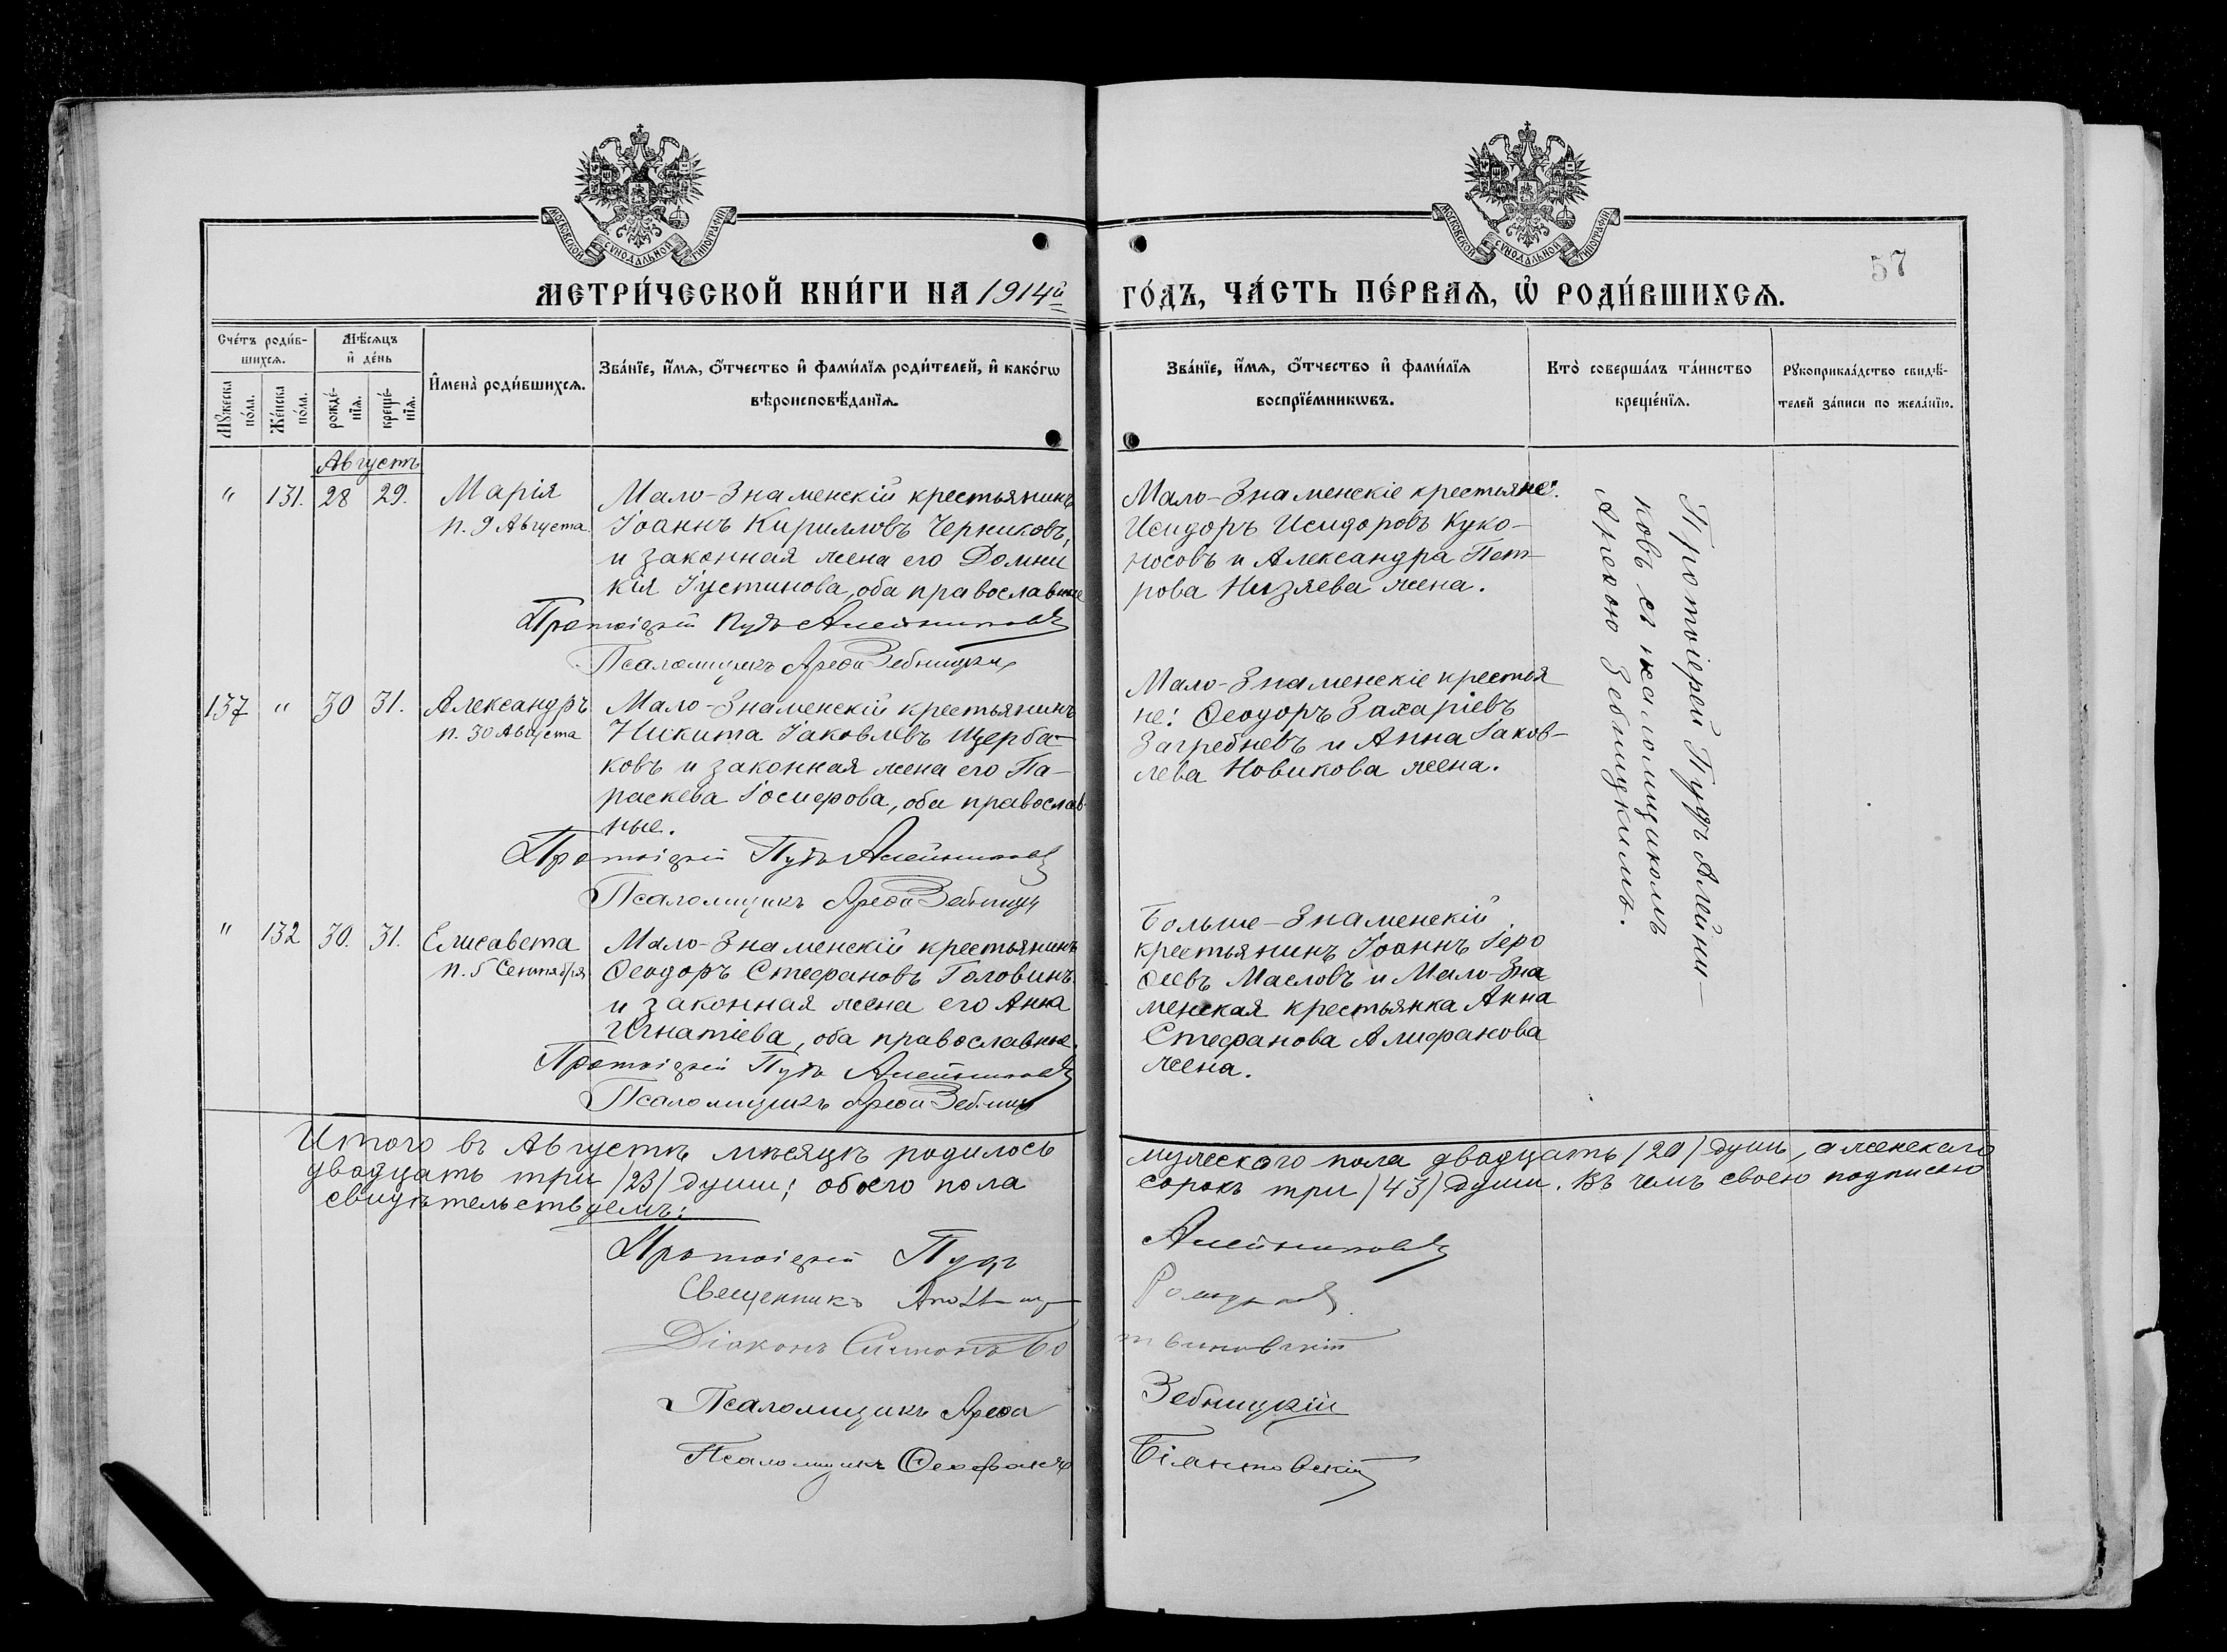 МОСКОВСКОЙ СѴНОДАЛЬНОЙ ТИПОГРАФІИ
МОСКОВСКОЙ СѴНОДАЛЬНОЙ ТИПОГРАФІИ
57
МЕТРИ́ЧЕСКОЙ КНИ́ГИ НА 1914й ГО́ДЪ, ЧА́СТЬ ПЕ́РВАѦ, Ѡ҆ РОДИ́ВШИХСѦ.
Сче́тъ роди́в-
шихсѧ.
Мѣ́сѧцъ
и҆ де́нь
И҆мена̀ роди́вшихсѧ.
Зва́нїе, и҆́мѧ, ѻ҆́тчество и҆ фами́лїѧ роди́телей, и҆ како́гѡ
вѣроисповѣ́данїѧ.
Зва́нїе, и҆́мѧ, ѻ҆́тчество и҆ фами́лїѧ
воспрїе́мникѡвъ.
Кто̀ соверша́лъ та́инство
креще́нїѧ.
Рꙋкоприкла́дство свидѣ́-
телей за́писи по жела́нїю.
Мꙋ́жеска
по́ла.
Же́нска
по́ла.
рожде́-
нїѧ.
креще́-
нїѧ.
Августъ
" 131. 28 29. Марія
п. 9 Августа
Мало-Знаменскій крестьянинъ
Іоаннъ Кирилловъ Черниковъ,
и законная жена его Домни
кія Іустинова, оба православные
Протоіерей Пудъ Алейниковъ
Псаломщикъ Арефа Зебницкій
Мало-Знаменскіе крестьяне:
Исидоръ Исидоровъ Куко-
носовъ и Александра Пет-
рова Низяева жена.
Протоіерей Пудъ Алейни-
ковъ съ псаломщикомъ
Арефою Зебницкимъ.
137 " 30 31. Александръ
п. 30 Августа
Мало-Знаменскій крестьянинъ
Никита Іаковлевъ Щерба-
ковъ и законная жена его Па-
раскева Іосифова, оба православ-
ные.
Протоіерей Пудъ Алейниковъ
Псаломщикъ Арефа Зебницк
Мало-Знаменскіе крестья
не: Ѳеодоръ Захаріевъ
Загребневъ и Анна Іаков-
лева Новикова жена.
" 132 30. 31. Елисавета
п. 5 Сентября
Мало-Знаменскій крестьянинъ
Ѳеодоръ Стефановъ Головинъ
и законная жена его Анна
Игнатіева, оба православные.
Протоіерей Пудъ Алейниковъ
Псаломщикъ Арефа Зебницк
Больше-Знаменскій
крестьянинъ Іоаннъ Іеро
ѳеевъ Масловъ и Мало-Зна
менская крестьянка Анна
Стефанова Алифанова
жена.
Итого въ Августѣ мѣсяцѣ родилось мужескаго пола двадцать /20/ душъ, а женскаго
двадцать три /23/ души; обоего пола сорокъ три /43/ души. Въ чемъ своею подписью
свидѣтельствуемъ:
Протоіерей Пудъ Алейниковъ
Священникъ
Діаконъ Симонъ
Псаломщикъ Арефа Зебницкій
Псаломщикъ Ѳеофанъ